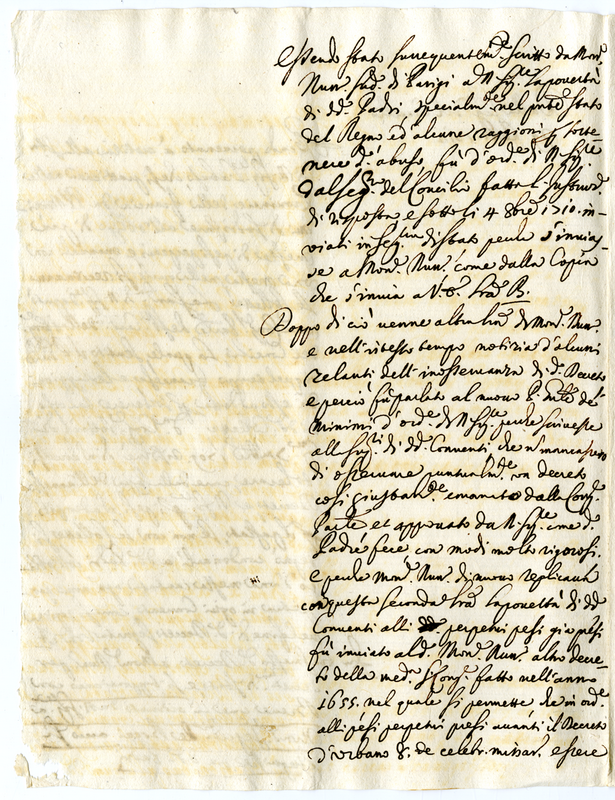 Essendo stato susseguentem.te scritto da Mons.
Nun. sud. di Parigi a N. Sig.re la povertà
di dd. Padri specialm.te nel pnte stato
del Regno ed alcune raggioni p. sotte-
nere d.o abuso fù d'ord.e di N. Sig.re
dal Seg.rio del Concilio fatta l'
di risposta e sotto li 4 8bre 1710. in-
viati in Seg.ria di Stato perche s'invias-
se a Mons. Nun. come dalla Copia
che s'invia a V.S. B.
Doppo di ciò venne altra di Mons. Nun.
e nell'istesso tempo notizia d'alcuni
zelanti dell'inosservanza di d.o Decreto
e perciò fù parlato al nuovo P. de'
Minimi d'ord.e di N. Sig.re perche scrivesse
alli di dd. Conventi che n. mancassero
di osservare puntualm.te un decreto
così giustam.te emanato dalla Cong.
et approvato da N. Sig.re come d.o
Padre fece con modi molto rigorosi.
e perche Mons. Nun. di nuovo replicava
con questa seconda la povertà di dd.
Conventi alli perpetui pesi già presi
fù inviato al d.o Mons. Nun. altro decre-
to della med. S. Cong. fatto nell'anno
1655. nel quale si permette che in ord.e
alli pesi perpetui presi avanti il Decreto
d'Urbano 8. de celebr. missar. essere